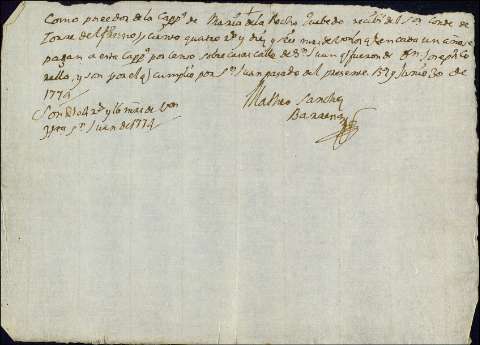 Como poseedor de la Capp.ª de María de la Rocha Quebedo recibí del S.or Conde de
Torre del Fresno, ciento quatro r.s y diez y seis mrs de vellon q.e en cada un año se
pagan a esta Capp.ª por censo sobre casas calle de S.n Juan q.e fueron de D.n Joseph
y son por el q.e cumplio por S.n Juan pasado del presente Junio 30 de
1774
Son 104 r.s y 16 mrs de von
S.n Juan de 1774
Matheo Sanchez